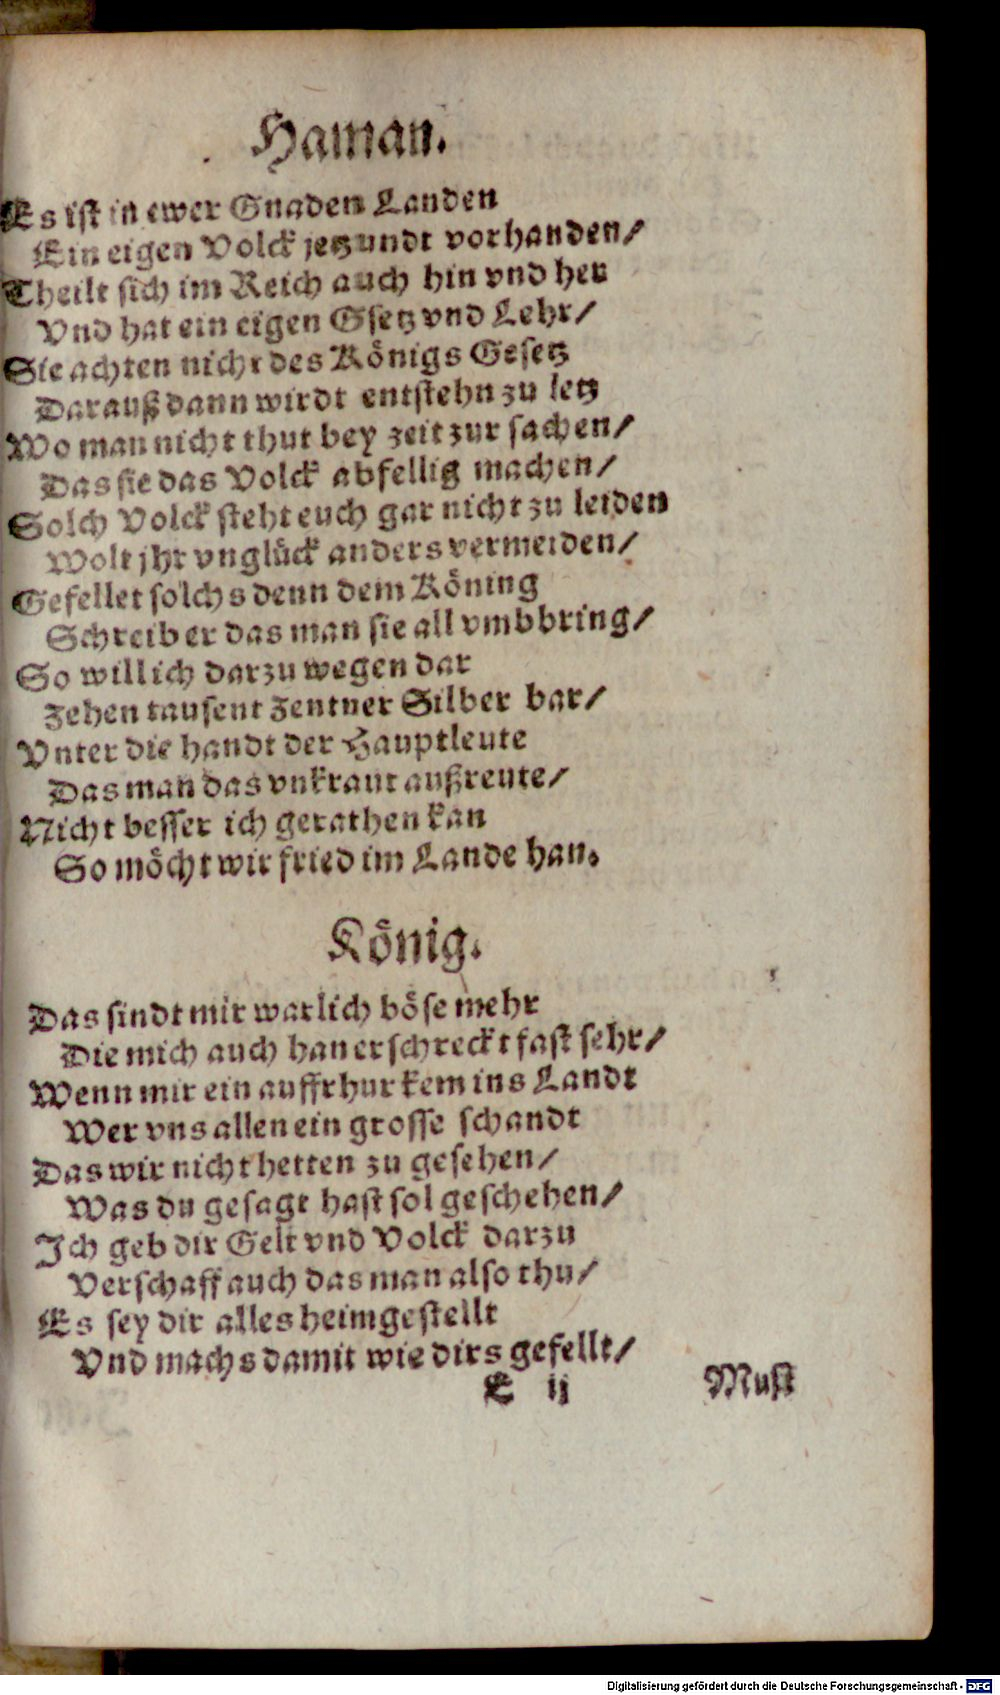 Haman.
Es ist in ewer Gnaden Landen
Ein eigen Volck jetzundt vorhanden/
Theilt sich im Reich auch hin vnd her
Vnd hat ein eigen Gsetz vnd Lehr/
Sie achten nicht des Königs Gesetz
Darauß dann wirdt entstehn zu letz
Wo man nicht thut bey zeit zur sachen/
Das sie das Volck abfellig machen/
Solch Volck steht euch gar nicht zu leiden
Wolt jhr vnglück anders vermeiden/
Gefellet solchs denn dem Köning
Schreib er das man sie all vmbbring/
So will ich darzu wegen dar
Zehen tausent Zentner Silber bar/
Vnter die handt der Hauptleute
Das man das vnkraut außreute/
Nicht besser ich gerathen kan
So möcht wir fried im Lande han.
König.
Das sindt mir warlich böse mehr
Die mich auch han erschreckt fast sehr/
Wenn mir ein auffrhur kem ins Landt
Wer vns allen ein grosse schandt
Das wir nicht hetten zu gesehen/
Was du gesagt hast sol geschehen/
Ich geb dir Gelt vnd Volck darzu
Verschaff auch das man also thu/
Es sey dir alles heimgestellt
Vnd machs damit wie dirs gefellt/
E ij Must
Digitalisierung gefördert durch die Deutsche Forschungsgemeinschaft - DFG